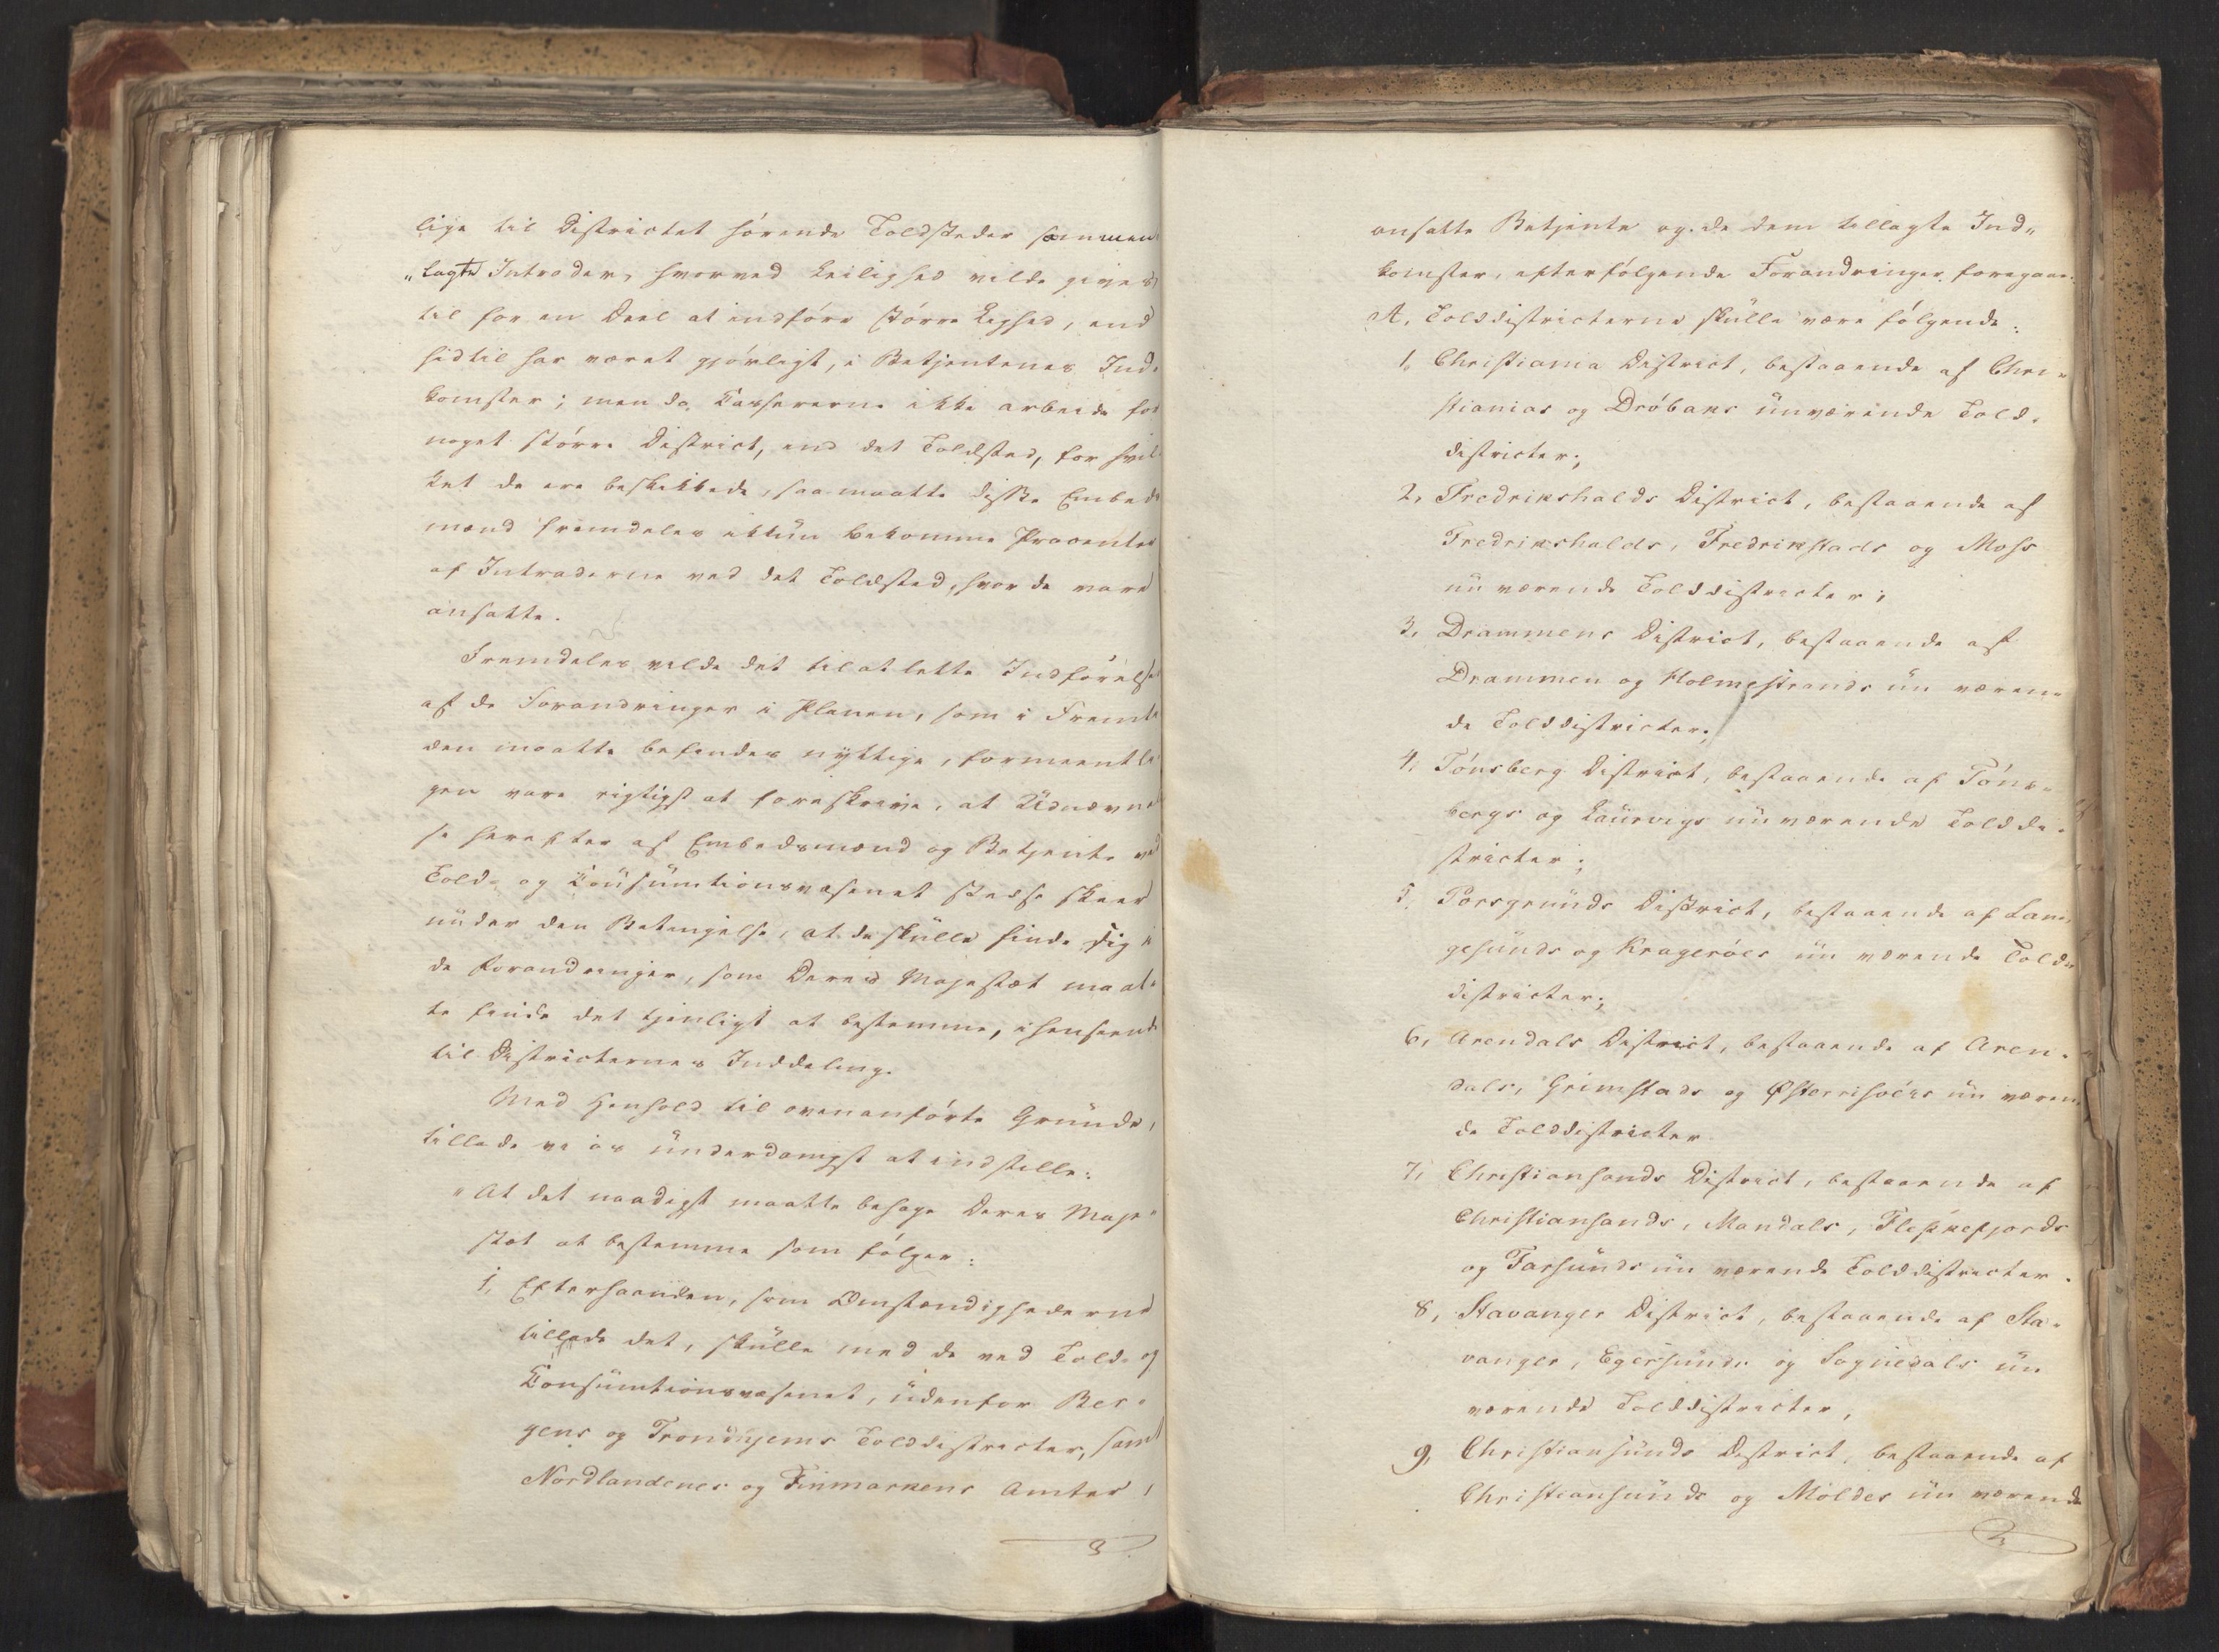 lige til Districtet hørende Toldsteder sammen
„lagte Intrader, hvorved Leilighed vilde gives
til for en Deel at indføre større Lighed, end
hidtil har været gjørligt, i Betjentenes Ind-
komster; men da Casserne ikke arbeide for
noget større District, end det Toldsted, for hvil-
ket de ere beskikkede, saa maatte disse Embeds
mænd fremdeles ikkun bekomme Procenter
af Intraderne ved det Toldsted, hvor de vare
ansatte.
Fremdeles vilde det til at lette Indførelsen
af de Forandringer i Planen, som i Fremti
den maatte befindes nyttige, formeentli
gen være rigtigst at foreskrive, at Udnævnel
se herefter af Embedsmænd og Betjente ved
Told- og Consumtionsvæsenet stedse skeer
under den Betingelse, at de skulle finde sig i
de Forandringer, som Deres Majestæt maat-
te finde det tjenligt at bestemme, i Henseende
til Districternes Inddeling.
Med Henhold til ovenanførte Grunde,
tillade vi os underdanigst at indstille:
"At det naadigst maatte behage Deres Maje"
stæt at bestemme som følger:
1, Efterhaanden, som Omstændighederne
tillade det, skulle med de ved Told- og
Consumtionsvæsenet, udenfor Ber-
gens og Trondhjems Tolddistricter, samt
Nordlandenes og Finmarkens Amter,
ansatte Betjente og de dem tillagte Ind„
komster, efterfølgende Forandringer foregaae:
A. Tolddistricterne skulle være følgende:
1, Christiania District, bestaaende af Chri-
stianias og Drøbaks nuværende Told-
districter;
2, Fredrikshalds District, bestaaende af
Fredrikshalds, Fredrikstads og Moss
nu værende Tolddistricter;
3, Drammens District, bestaaende af
Drammen og Holmestrands nu væren-
de Tolddistricter;
4, Tønsberg District, bestaaende af Tøns-
bergs og Laurvigs nuværende Toldde-
stricter;
5, Porsgrunds District, bestaaende af Lan-
gesunds og Kragerøes nu værende Told-
districter;
6, Arendals District, bestaaende af Aren-
dals, Grimstads og Østerrisøers nu væren
de Tolddistricter
7, Christiansands District, bestaaende af
Christiansands, Mandals, Flekkefjords
og Farsunds nu værende Tolddistricter.
8, Stavanger District, bestaaende af Sta-
vanger, Egersunds og Sognedals nu
værende Tolddistricter,
9, Christiansunds District, bestaaende af
Christiansunds og Moldes nu værende